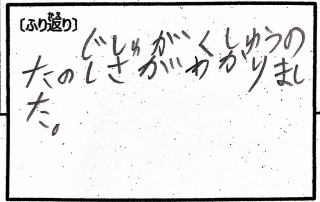 〔ふり返り〕
かえ
じしゅがくしゅうの
たのしさがわかりまし
た。